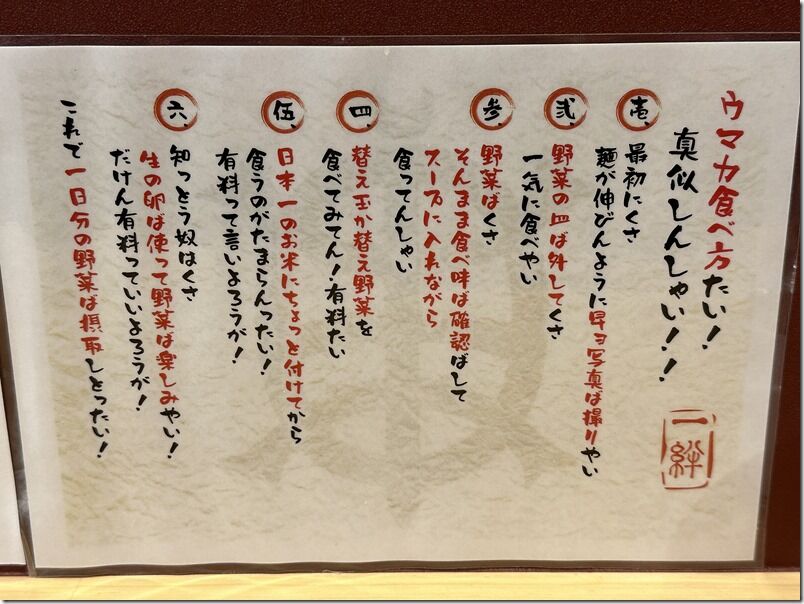 ウマカ食べ方たい！
真似しんしゃい！！
一絆
壱、
最初にくさ
麺が伸びんように早ヨ写真ば撮りやい
弐、
野菜の皿ば外してくさ
一気に食べやい
参、
野菜ばくさ
そんまま食べ味ば確認ばして
スープに入れながら
食ってんしゃい
四、
替え玉か替え野菜を
食べてみてん！有料たい
伍、
日本一のお米にちょっと付けてから
食うのがたまらんったい！
有料って言いよろうが！
六、
知っとう奴はくさ
生の卵ば使って野菜は楽しみやい！
だけん有料っていいよろうが！
これで一日分の野菜ば摂取しとったい！